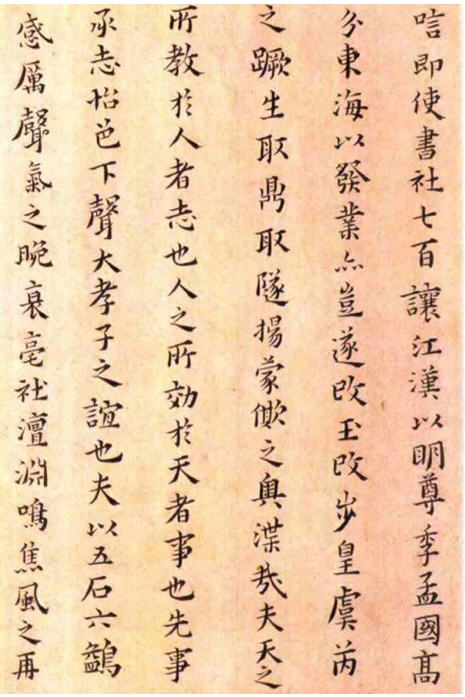 唁即使書社七百讓江漢以明尊季孟國高
分東海以發業亦豈遂改玉改步皇虞芮
之蹶生取鼎取隧揚蒙之渫哉夫天之
所教於人者志也人之所効於天者事也先事
承志怡色下聲大孝子之誼也夫以五石六鷁
感厲聲氣之晚衰亳社澶淵鳴焦風之再